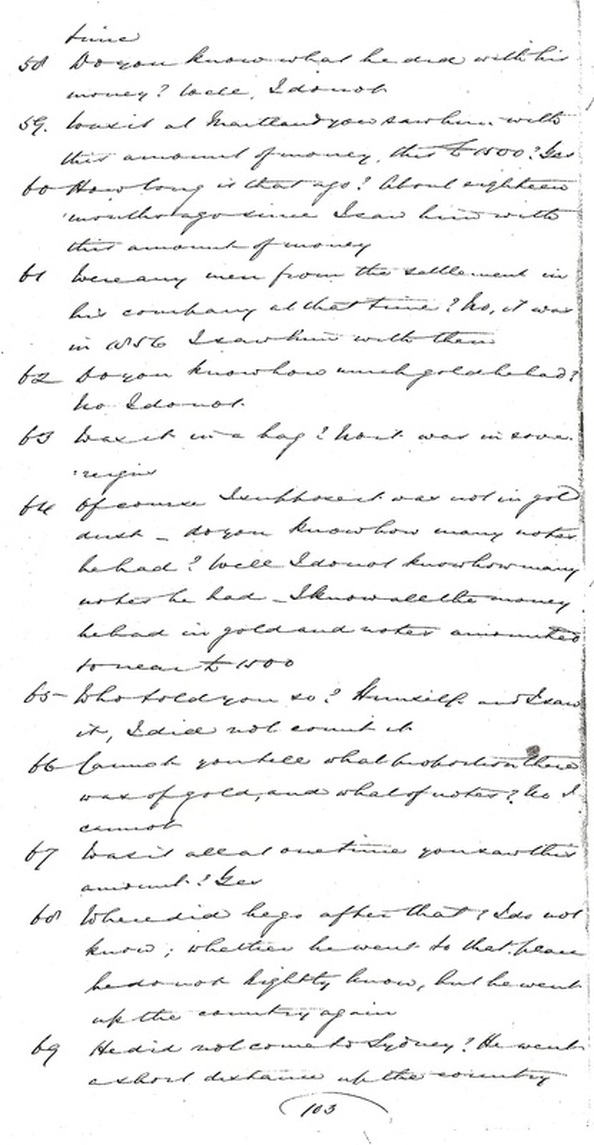 time
58 Do you know what he did with his
money? Well, I do not
59. Was it at Maitland you saw him with
this amount of money, this £1500? Yes
60 How long is that ago? About eighteen
months ago since I saw him with
this amount of money
61 Were any men from the settlement in
his company at that time? No, it was
in 1856 I saw him with them
62 Do you know how much gold he had?
No I do not.
63 Was it in a bag? No it was in sove
:reigns
64 Of course I suppose it was not in gold
dust - do you know how many notes
he had? Well I do not know how many
notes he had - I know all the money
he had in gold and notes amounted
to near £1500
65 Who told you so? Himself and I saw
it, I did not count it
66 Cannot you tell what proportion there
was of gold, and what of notes? No I
cannot
67 Was it all at one time you saw this
amount? Yes
68 Where did he go after that? I do not
know; whether he went to that place
he do not rightly know, but he went
up the country again
69 He did not come to Sydney? He went
a short distance up the country
103